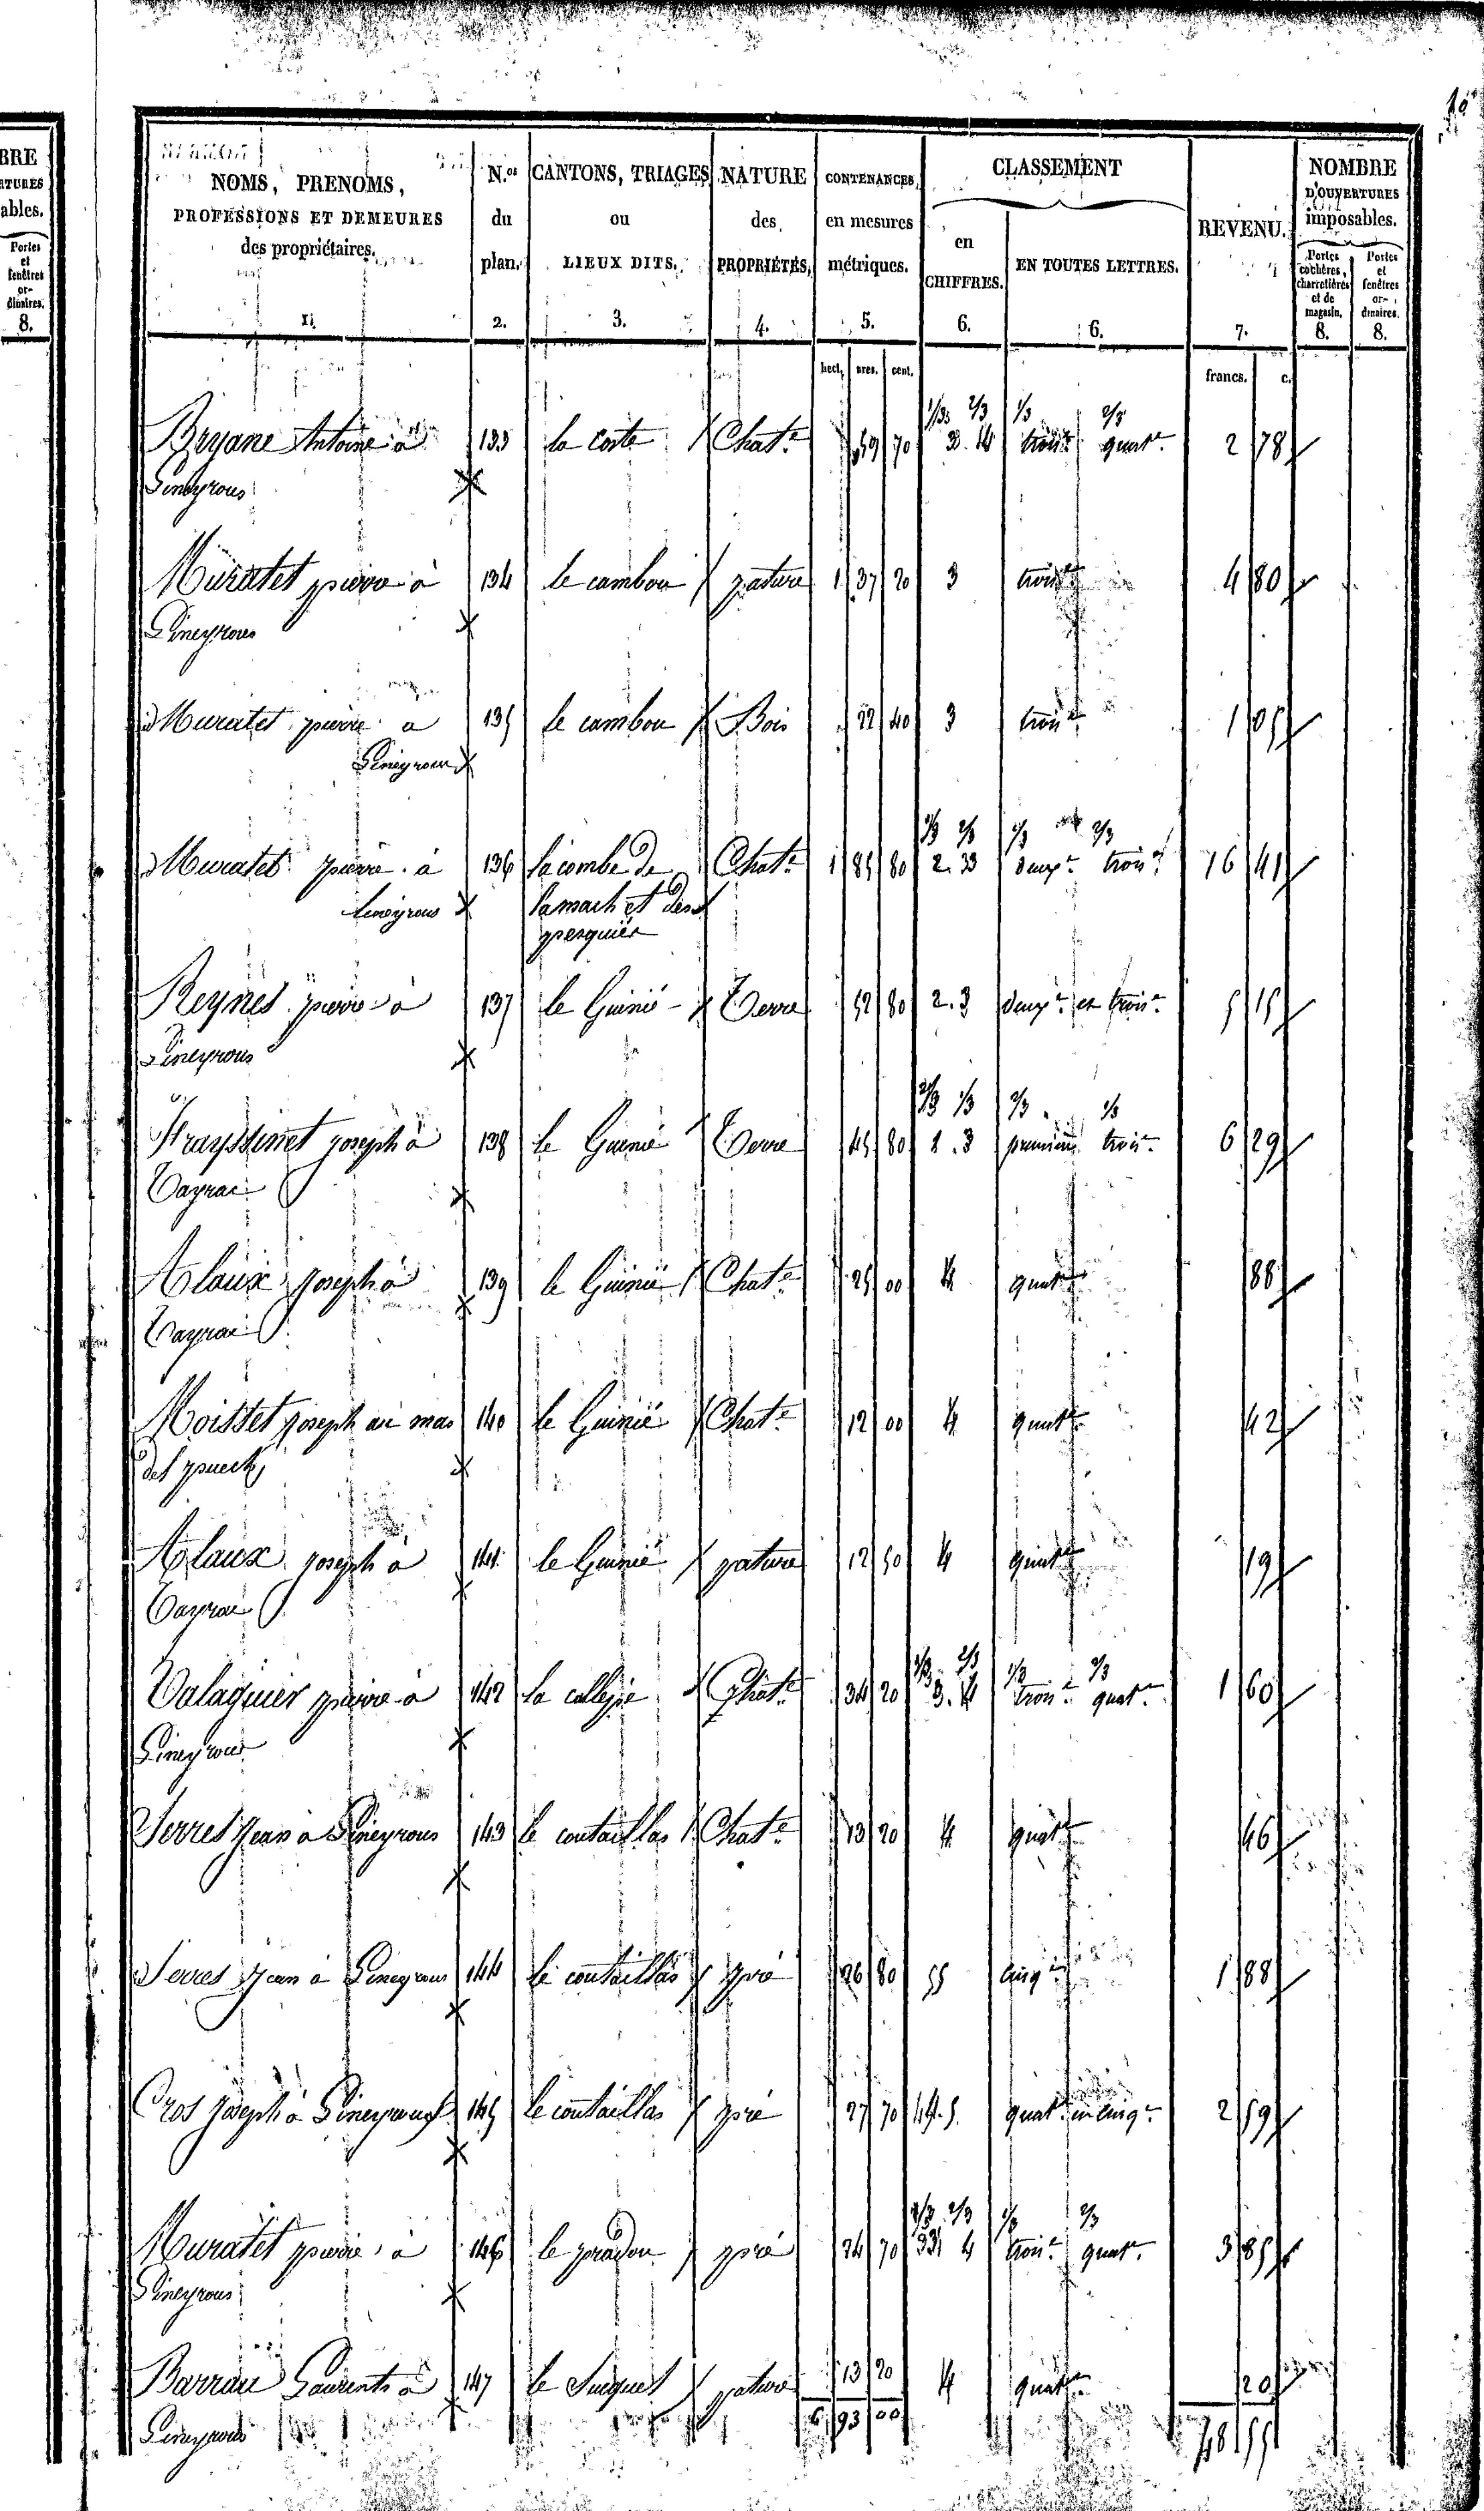 10
BRE
ables.
Portes
et
fenêtres
or-
dinaires.
8.
NOMS, PRENOMS,
PROFESSIONS ET DEMEURES
des propriétaires.
1.
N.os
du
plan.
2.
CANTONS, TRIAGES
ou
LIEUX DITS.
3.
NATURE
des
PROPRIÉTÉS.
4.
CONTENANCES
en mesures
métriques.
5.
CLASSEMENT
en
CHIFFRES.
6.
EN TOUTES LETTRES.
6.
REVENU.
7.
NOMBRE
D'OUVERTURES
imposables.
Portes
cochères,
charretières
et de
magasin.
8.
Portes
et
fenêtres
or-
dinaires.
8.
hect. ares. cent.
francs. c.
1/3 2/3 1/3 2/3
Antoine à 133 la coste Chat.e 59 70 3. 4 trois.e quat.e 2 78
Gineyrous
Muratet pierre à 134 le cambou pature 1 37 20 3 trois.e 4 80
Gineyrous
Muratet pierre à 135 le cambou Bois 22 40 3 trois.e 1 05
Gineyrous
1/3 2/3 1/3 2/3
Muratet pierre à 136 la combe de Chat.e 1 85 80 2. 3 deux.e trois.e 16 41
Gineyrous
Reynes pierre à 137 le Guinié Terre 52 80 2. 3 deux.e et trois.e 5 15
Gineyrous
2/3 1/3 2/3 1/3
Frayssinet joseph à 138 le Guinié Terre 45 80 2. 3 trois.e 6 29
Tayrac
Alaux joseph à 139 le Guinié Chat.e 25 00 4 quat.e 88
Tayrac
Moisset joseph au mas 140 le Guinié Chat.e 12 00 4 quat.e 42
del puech
Alaux joseph à 141 le Guinié pature 12 50 4 quat.e 19
Tayrac
1/3 2/3 1/3 2/3
Valaquier pierre à 142 la Chat.e 34 20 3. 4 trois.e quat.e 1 60
Gineyrous
Serres jean à Gineyrous 143 le contaillas Chat.e 13 20 4 quat.e 46
Serres jean à Gineyrous 144 le contaillas pré 26 80 5 cinq.e 1 88
Cros joseph à Gineyrous 145 le contaillas pré 27 70 4. 5. quat.e cinq.e 2 59
1/3 2/3 1/3 2/3
Muratet pierre à 146 le pradou pré 24 70 3 4 trois.e quat.e 3 85
Gineyrous
Barrau Laurent à 147 le Suquet pature 13 20 4 quat.e 20
Gineyrous 6 93 00
48 55